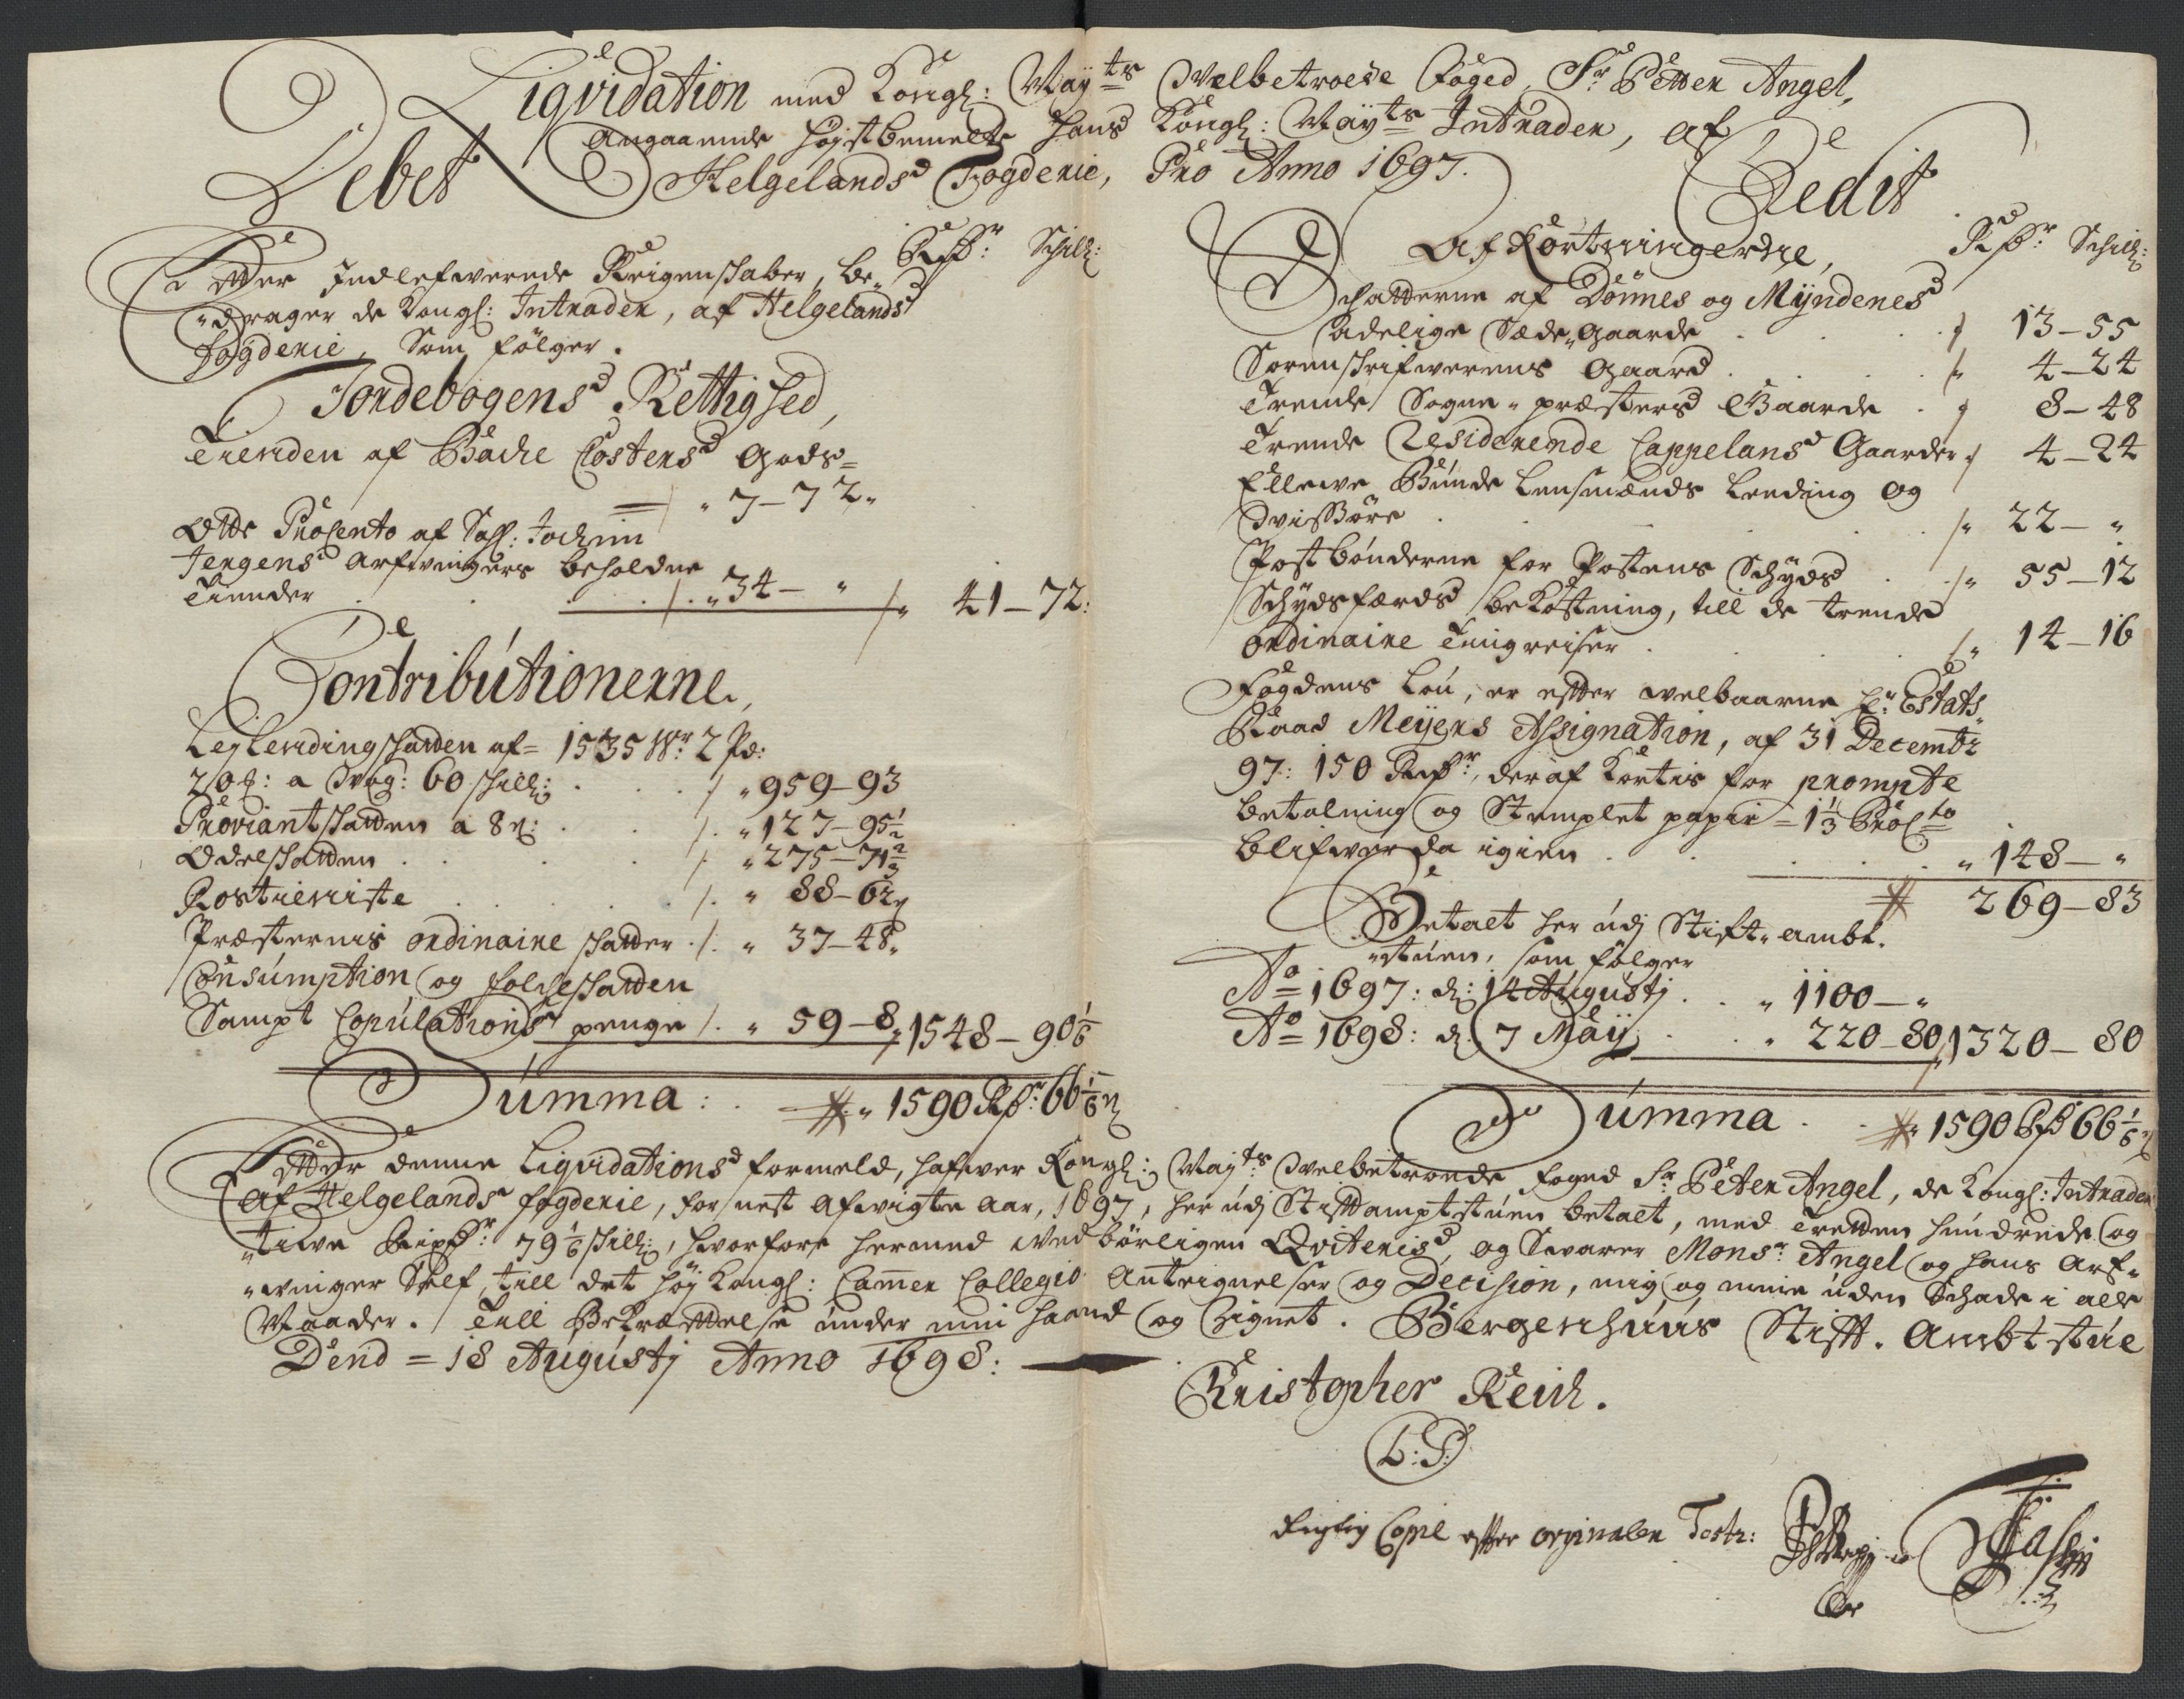 Liqvidation med Kongl: Mayts Velbetroede Foged, Sr Petter Angel,
Angaaende Højstbemelte Hans Kongl: Mayts Intrader, af
Helgelands Fogderie, Pro Anno 1697.
Debet
Rdr: Schill:
Effter Indlefwerede Reigenskaber, be-
drager de Kongl: Intrader, af Helgelands
fogderie, Som følger.
Jordebogens Rettighed,
Tienden af Bache Closters Gods=
7-72
Otte Procento af Sahl: Jochim
Jergens Arfwingers beholdne
Tiender . . . 34- " 41-72:
Contributionerne,
Leylendingschatten af= 1535 W: 2 Pd:
20 : a Wog: 60 schill: . . 959-93
Proviantschatten a 8 : . . 127-95½
Odelschatten . . . 275-71⅔
Rostieniste . . . 88-62
Præsternis ordinaire schatter . 37-48
Consumption og folcheschatten
Sampt Copulations penge . 59-8 1548-90⅙
Summa: . 1590 Rdr: 66⅙
Credit
Afkortningerne, Rdr: Schill:
Schatterne af Dönnes og Mÿndenes
Adelige Sæde Gaarde . . . 13-55
Sorenschrifwerens Gaard . . . 4-24
Trende Sogne-præsters Gaarde . 8-48
Trende Residerende Cappelans Gaarder 4-24
Ellewe Bunde Lensmænds Leeding og
. . . 22- "
Postbønderne for Postens Schyds . 55-12
Schydsfærds bekostning, till de trende
ordinaire Tingreiser . . . 14-16
Fogdens Løn, er effter welbaarne Hr: Estats
Raad Meÿers Assignation, af 31 Decembr
97: 150 Rdr, deraf kortis for prompte
betalning og Stemplet papir = 1⅓ Procto
blifwer da igien . . . 148- "
269-83
Betalt her udj Stift-ambt.
stuen, som følger
Ao 1697: d: 14 Augustj . . 1100- "
Ao 1698: d: 7 Maÿ . . 220-80 1320-80
Summa . . 1590 Rdr 66⅙
Effter denne Liqvidations formeld, hafwer Kongl: Mayts: Velbetroede foged Sr Peter Angel, de Kongl: Intrader
Af Helgelands fogderie, for nest Afwigte Aar, 1697, her udj Stifftamptstuen betalt, med Tretten hundrede og
tiwe Rixdr: 79⅙ schill:, hvorfore hermed Ved børligen Qviteris, og Swarer Monsr. Angel og hans Arf-
winger Self, till det høy Kongl: Cammer Collegio Anteignelser og Decision, mig og mine uden Schade i alle
Maader. Till Bekræfftelse under min haand og Zignet. Bergenhuus Stifft. Ambtstue
Dend = 18 Augustj Anno 1698:
Kristopher Reich.
L:S:
Rigtig Copie effter originalen Testr: